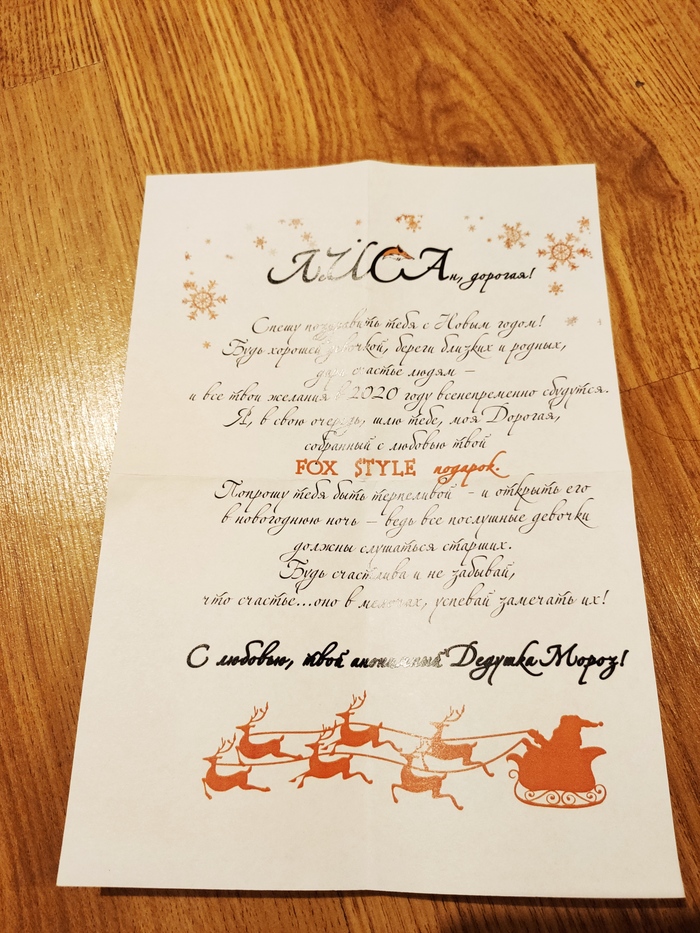 ЛИСАн, дорогая!
Спешу поздравить тебя с Новым годом!
Будь хорошей девочкой, береги близких и родных,
дари счастье людям –
и все твои желания в 2020 году всенепременно сбудутся.
Я, в свою очередь, шлю тебе, моя Дорогая,
собранный с любовью твой
FOX STYLE подарок.
Попрошу тебя быть терпеливой – и открыть его
в новогоднюю ночь – ведь все послушные девочки
должны слушаться старших.
Будь счастлива и не забывай,
что счастье...оно в мелочах, успевай замечать их!
С любовью, твой анонимный Дедушка Мороз!